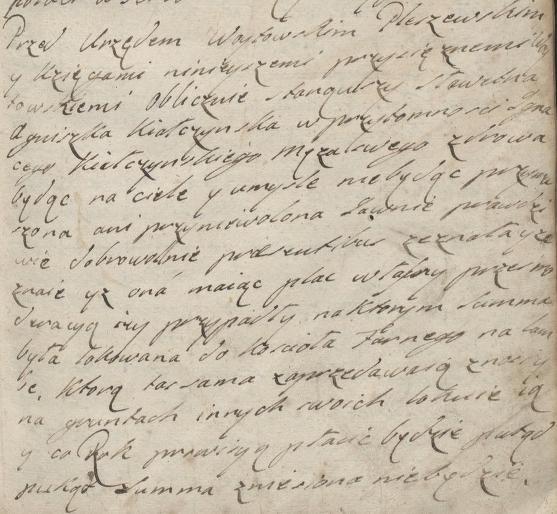 Przed Urzędem Woytowskim Pleszewskim
y Xięgami ninieyszemi przysiężnemi Woy
towskiemi Oblicznie stanąwszy Sławetna
Agniszka Kiełczynska w przytomnosci Igna
cego Kiełczynskiego Męża swego zdrowa
będąc na ciele y umysle niebędąc przymu
szona ani przyniewolona Jawnie prawdzi
wie dobrowolnie praesentibus zeznała y ze
znaie yz ona maiąc plac własny przez su
kcessyą iey przypadły na ktorym Summa
była lokowana do Koscioła Farnego na
ktorą tas sama zaprzedawaią znosi y
na gruntach innych swoich lokuie ią
y co Rok prowizyą płacic będzie pokąd
pukąd Summa zniesiona niebędzie.